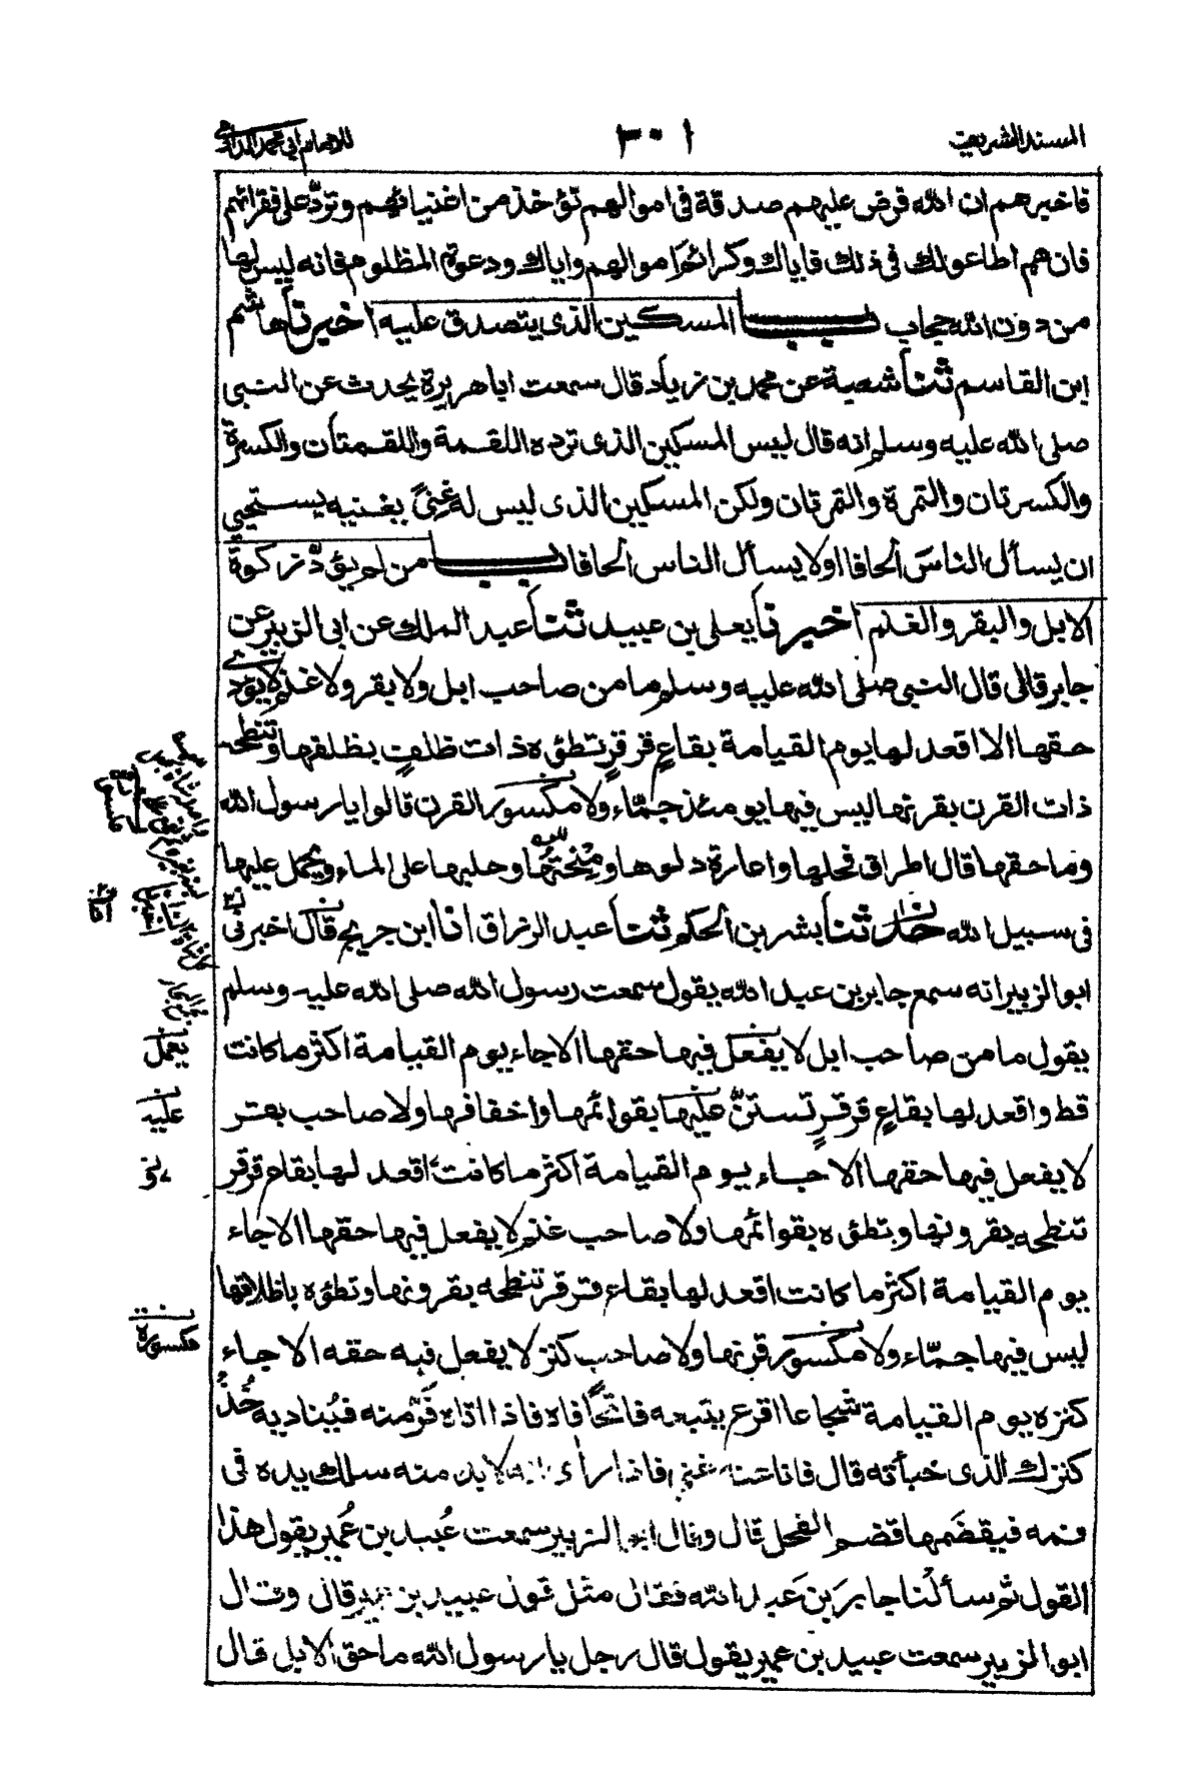 المسند الشريف
٣٠١
للامام ابي محمد الدارمي
فاخبرهم ان الله فرض عليهم صدقة في اموالهم تؤخذ من اغنيائهم وتردّ على فقرائهم
فان هم اطاعوا لك في ذلك فاياك وكرائم اموالهم واياك ودعوة المظلوم فانه ليس لها
من دون الله حجاب باب المسكين الذي يتصدق عليه اخبرنا هاشم
ابن القاسم ثنا شعبة عن محمد بن زياد قال سمعت ابا هريرة يحدث عن النبي
صلى الله عليه وسلم انه قال ليس المسكين الذى ترده اللقمة واللقمتان والكسرة
والكسرتان والتمرة والتمرتان ولكن المسكين الذى ليس له غِنىً يغنيه يستحيي
ان يسأل الناسَ الحافا اولا يسأل الناس الحافا باب من لم يؤدّ زكوة
الابل والبقر والغنم اخبرنا يعلى بن عبيد ثنا عبد الملك عن ابى الزبير عن
جابر قال قال النبي صلى الله عليه وسلم ما من صاحب ابل ولا بقر ولا غنم لا يؤدى
حقها الا اقعد لها يوم القيامة بقاعٍ قرقرٍ تطؤه ذات ظلفٍ بظلفها وتنطحه
ذات القرن بقرنها ليس فيها يومئذ جمّاء ولا مكسور القرن قالوا يا رسول الله
وما حقها قال اطراق فحلها واعارة دلوها ومِنْحَتُها وحلبها على الماء ويحمل عليها
في سبيل الله حدثنا بشر بن الحكم ثنا عبد الرزاق انا ابن جريج قال اخبرنى
ابو الزبير انه سمع جابر بن عبد الله يقول سمعت رسول الله صلى الله عليه وسلم
يقول ما من صاحب ابل لا يفعل فيها حقها الا جاء يوم القيامة اكثر ما كانت
قط واقعد لها بقاعٍ قرقرٍ تستنّ عليها بقوائمها واخفافها ولا صاحب بقر
لا يفعل فيها حقها الا جاء يوم القيامة اكثر ما كانت اقعد لها بقاع قرقر
تنطحه بقرونها وتطؤه بقوائمها ولا صاحب غنم لا يفعل فيها حقها الا جاء
يوم القيامة اكثر ما كانت اقعد لها بقاع قرقر تنطحه بقرونها وتطؤه باظلافها
ليس فيها جمّاء ولا مكسور قرنها ولا صاحب كنز لا يفعل فيه حقه الا جاء
كنزه يوم القيامة شجاعا اقرع يتبعه فاتحًا فاه فاذا اتاه فَرَّ منه فيُناديه خُذْ
كنزك الذى خبأته قال فانا عنه غني فاذا رأى انه لا بد منه سلك يده فى
فمه فيقضَمها قضم الفحل قال وقال ابو الزبير سمعت عُبيد بن عُمير يقول هذا
القول ثم سألنا جابرَ بنَ عبد الله فقال مثل قول عبيد بن عمير قال وقال
ابو الزبير سمعت عبيد بن عمير يقول قال رجل يا رسول الله ما حق الابل قال
يعمل
عليه
مكسورة